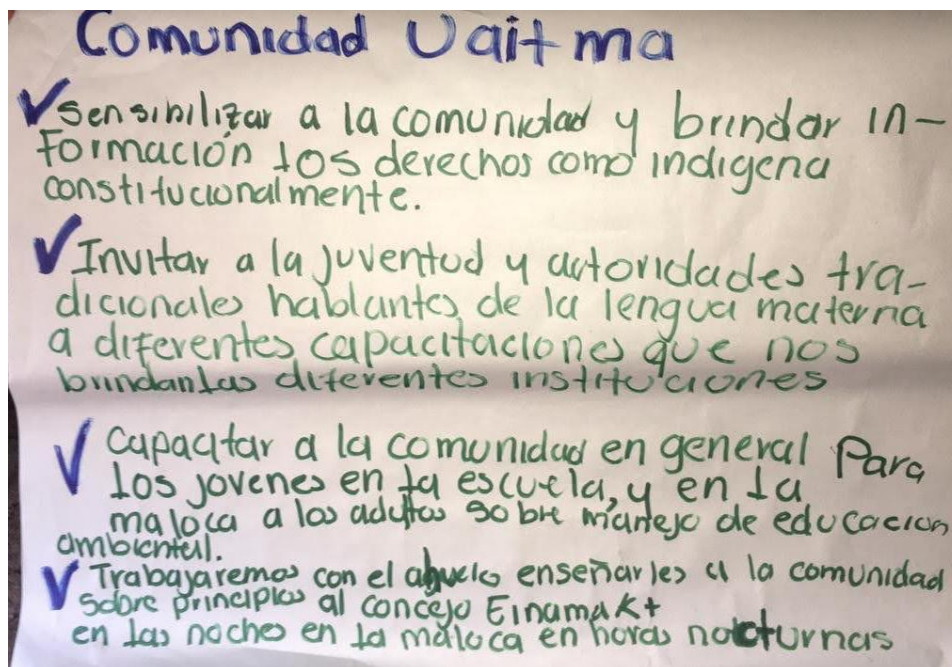 Comunidad Uait ma
✓ Sensibilizar a la comunidad y brindar in-
formación los derechos como indigena
constitucionalmente.
✓ Invitar a la juventud y autoridades tra-
dicionales hablantes de la lengua materna
a diferentes capacitaciones que nos
brindan las diferentes instituciones
✓ Capacitar a la comunidad en general Para
los jovenes en la escuela, y en la
maloca a los adultos sobre manejo de educacion
ambiental.
✓ Trabajaremos con el abuelo enseñarles a la comunidad
sobre principios al concejo Einamak+
en las noches en la maloca en horas nocturnas